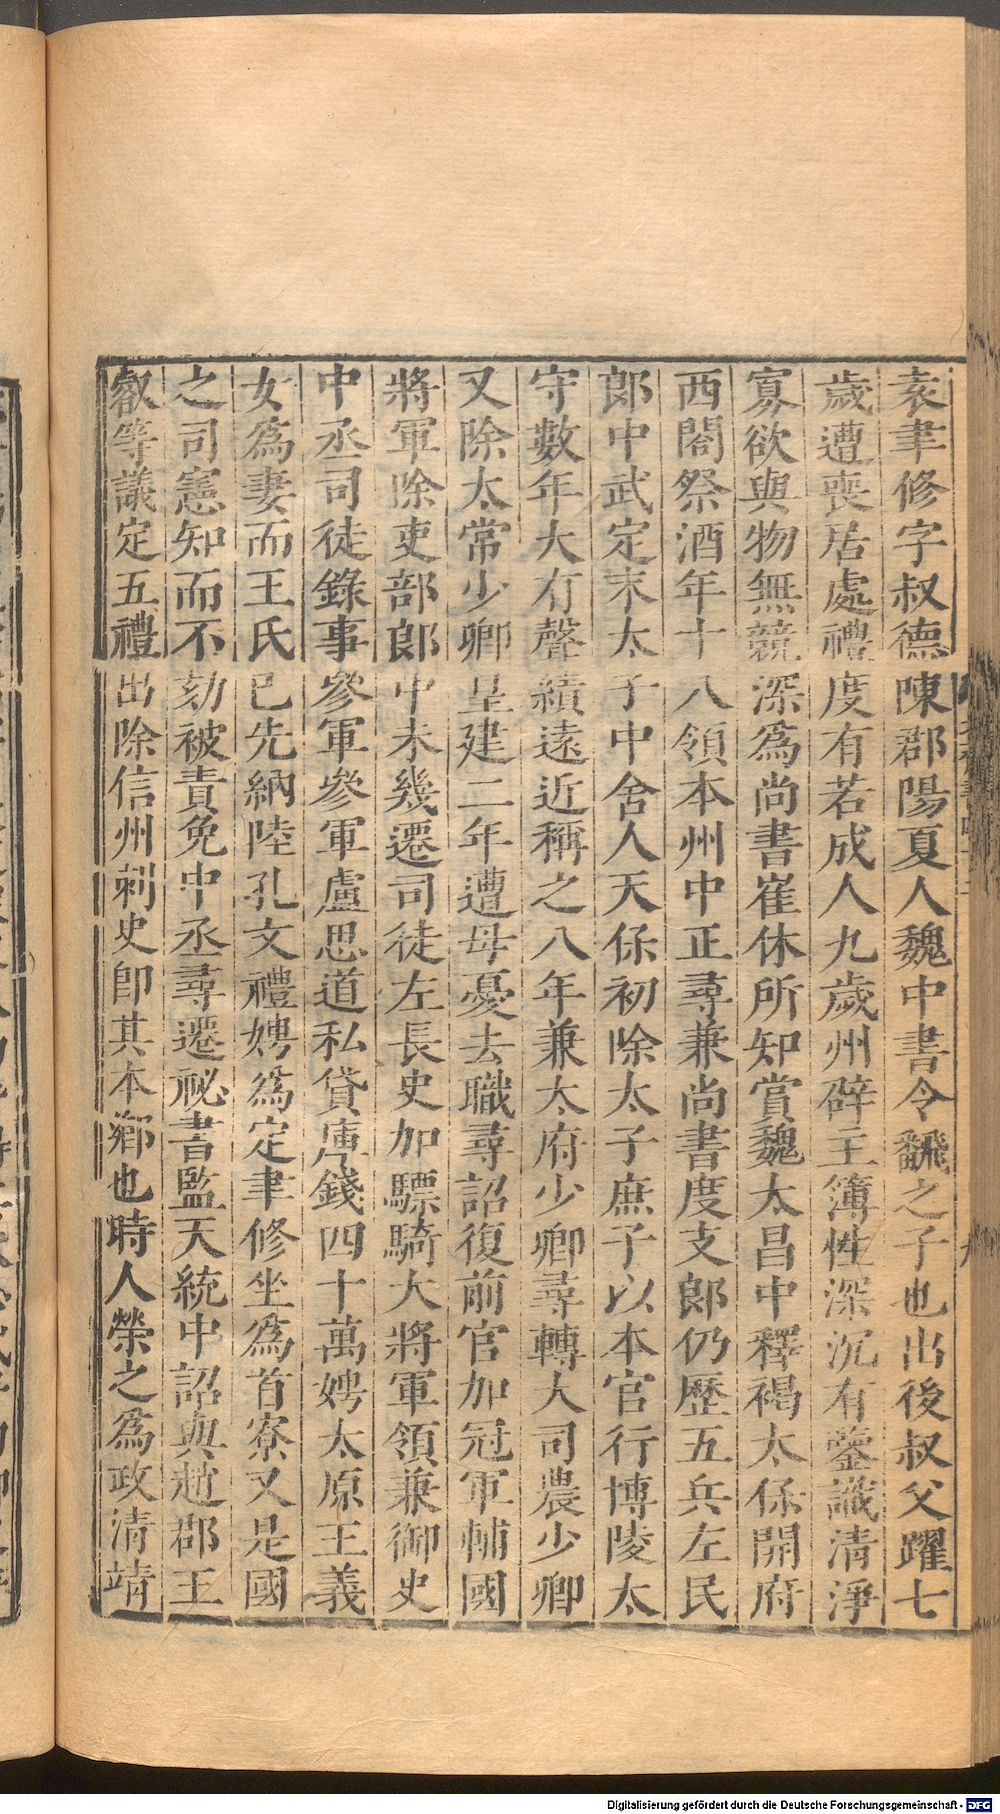 袁聿修字叔德陳郡陽夏人魏中書令飜之子也出後叔父躍七
歲遭喪居處禮度有若成人九歲州辟主簿性深沉有鑒識清淨
寡欲與物無競深為尚書崔休所知賞魏太昌中釋褐太保開府
西閤祭酒年十八領本州中正尋兼尚書度支郎仍歷五兵左民
郎中武定末太子中舍人天保初除太子庶子以本官行博陵太
守數年大有聲績遠近稱之八年兼太府少卿尋轉大司農少卿
又除太常少卿皇建二年遭母憂去職尋詔復前官加冠軍輔國
將軍除吏部郎中未幾遷司徒左長史加驃騎大將軍領兼御史
中丞司徒錄事參軍參軍盧思道私貸庫錢四十萬娉太原王義
女為妻而王氏已先納陸孔文禮娉為定聿修坐為首寮又是國
之司憲知而不劾被責免中丞尋遷祕書監天統中詔與趙郡王
叡等議定五禮出除信州刺史即其本鄉也時人榮之為政清靖
Digitalisierung gefördert durch die Deutsche Forschungsgemeinschaft - DFG